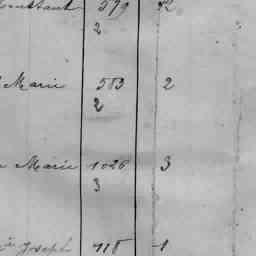 579 2
2
Marie 583 2
2
Marie 1026 3
3
Joseph 718 1